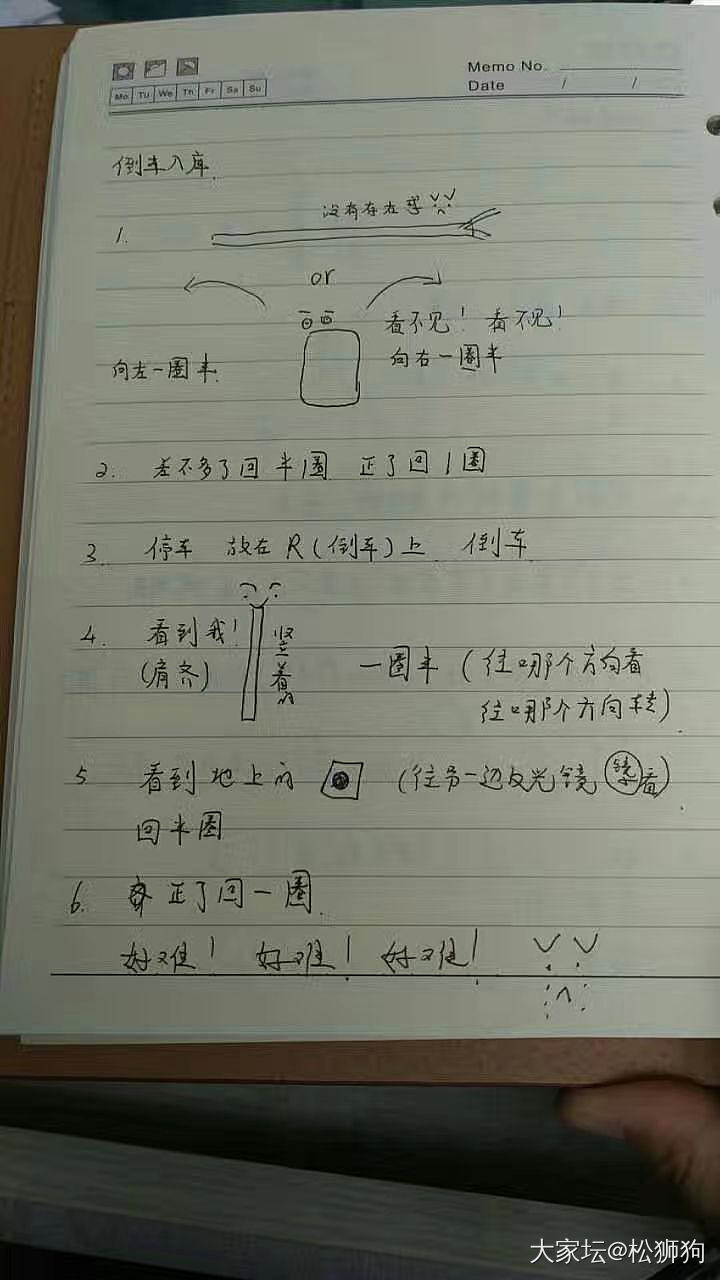 Memo No.
Date / /
Mo Tu We Th Fr Sa Su
倒车入库
没有存在感
1.
or
看不见！看不见！
向左一圈半 向右一圈半
2. 差不多了回半圈 正了回1圈
3. 停车 放在R(倒车)上 倒车
4. 看到我！ 竖着的 一圈半(往哪个方向看
(肩齐) 往哪个方向转)
5 看到地上的 (往另一边反光镜看)
回半圈
6. 正了回一圈
好难！好难！好难！
大家坛@松狮狗